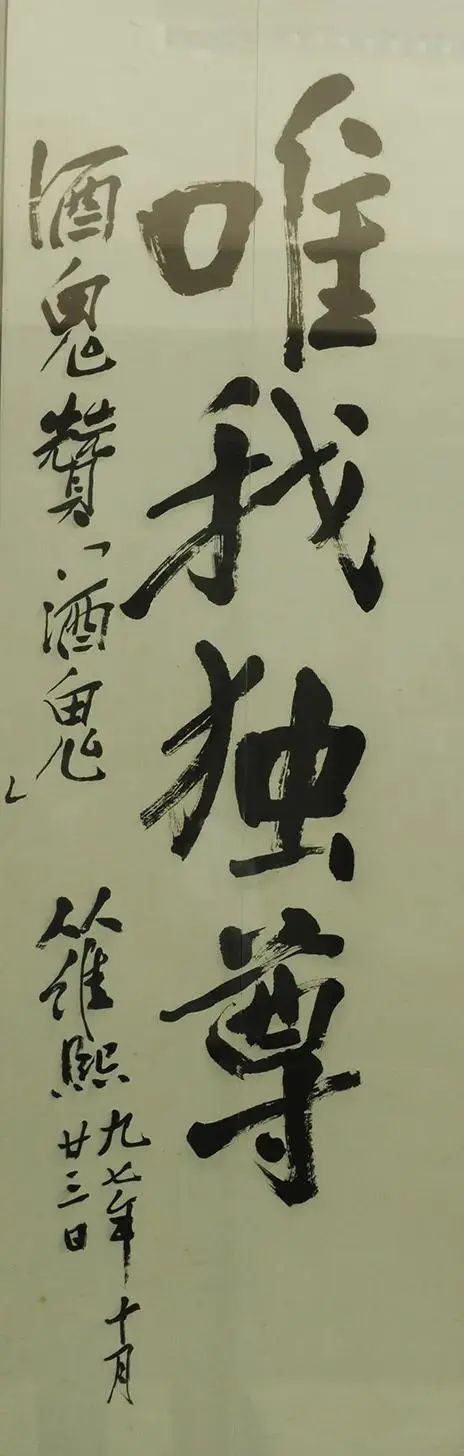 唯我独尊
酒鬼赞「酒鬼」
从维熙
九七年十月
廿三日